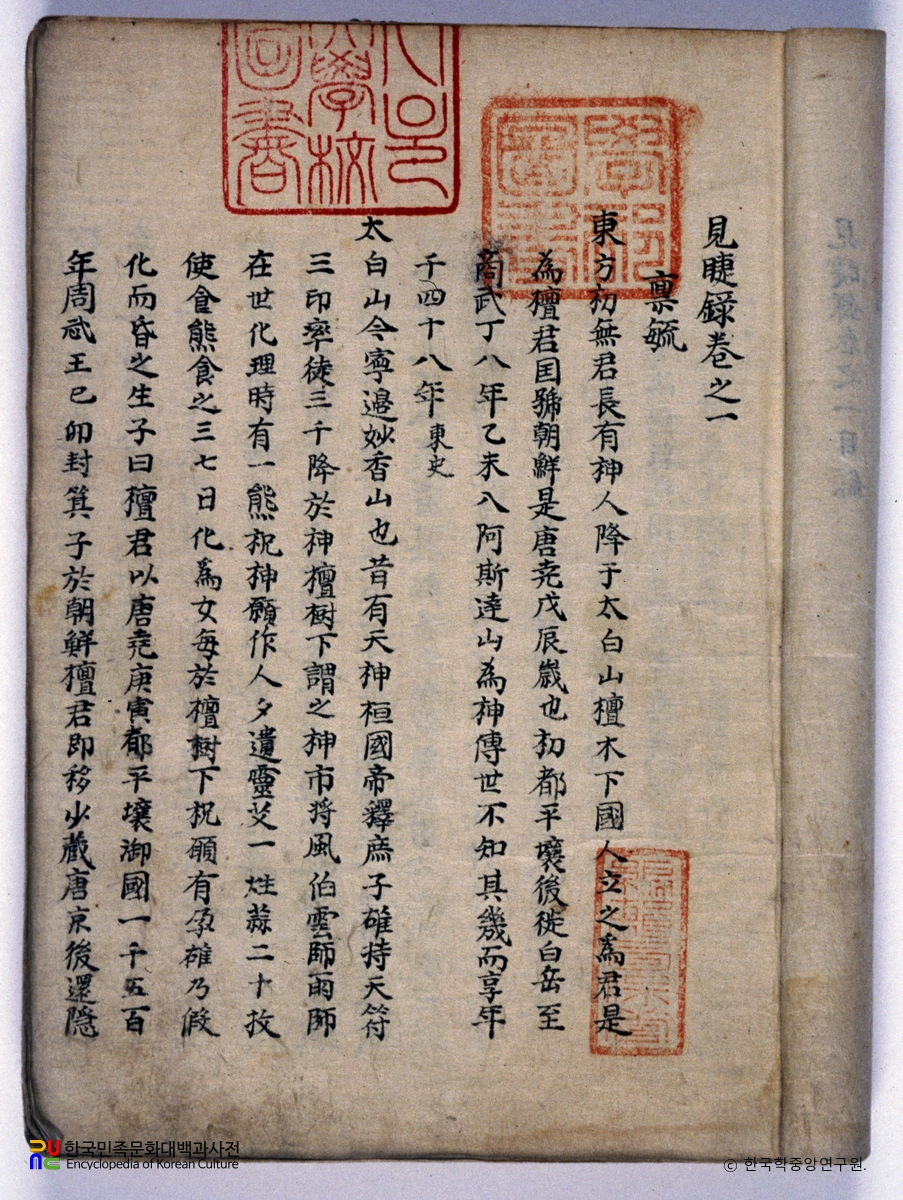 見睫録卷之一
稟毓
東方初無君長有神人降于太白山檀木下國人立之為君是
為檀君国號朝鮮是唐尭戊辰嵗也初都平壤後徙白岳至
商武丁八年乙未入阿斯達山為神傳世不知其幾而享年
千四十八年 東史
太白山今寧邉妙香山也昔有天神桓國帝釋庶子雄持天符
三印率徒三千降於神檀樹下謂之神市将風伯雲師雨師
在世化理時有一熊祝神願作人夕遺靈艾一炷蒜二十枚
使食熊食之三七日化爲女每於檀樹下祝願有孕雄乃假
化而昏之生子曰檀君以唐堯庚寅都平壤御國一千五百
年周武王己卯封箕子於朝鮮檀君即移少藏唐京後還隱
學部圖書
學校圖書
見睫録卷之一目録
한국민족문화대백과사전
Encyclopedia of Korean Culture
ⓒ 한국학중앙연구원.